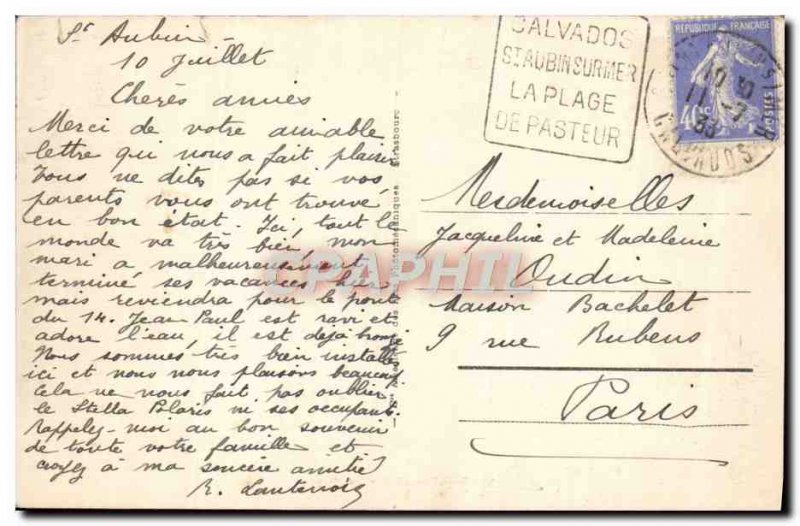 St Aubin
10 Juillet
Cherès amies
Merci de votre aimable
lettre qui nous a fait plaisir
Vous ne dites pas si vos
parents vous ont trouvé
en bon état. Ici, tout le
monde va très bien, mon
mari a malheureusement
terminé ses vacances hier
mais reviendra pour le pont
du 14. Jean Paul est ravi et
adore l'eau, il est déjà bronzé
Nous sommes très bien installés
ici et nous nous plaisons beaucoup
Cela ne nous fait pas oublier
le Stella Polaris ni ses occupants.
Rappelez-moi au bon souvenir
de toute votre famille et
croyez à ma sincère amitié
CALVADOS
ST AUBIN SUR MER
LA PLAGE
DE PASTEUR
REPUBLIQUE FRANÇAISE
40c
POSTES
CALVADOS
Mesdemoiselles
Jacqueline et Madeleine
Oudin
Maison Bachelet
9 rue Rubens
Paris
CPAPHIL